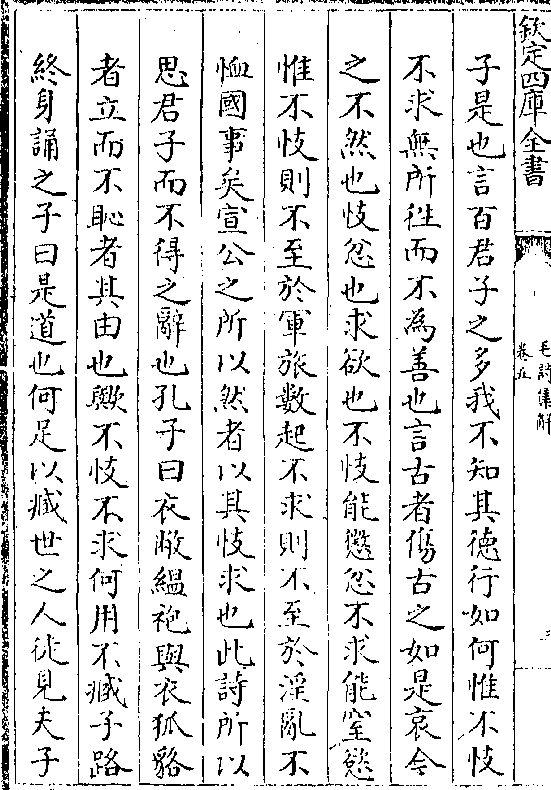 欽定四庫全書
毛詩集解
卷五
子是也言百君子之多我不知其徳行如何惟不忮
不求無所徃而不為善也言古者傷古之如是哀今
之不然也忮忿也求欲也不忮能懲忿不求能窒慾
惟不忮則不至於軍旅數起不求則不至於淫亂不
恤國事矣宣公之所以然者以其忮求也此詩所以
思君子而不得之辭也孔子曰衣敝緼袍與衣狐貉
者立而不恥者其由也歟不忮不求何用不臧子路
終身誦之子曰是道也何足以臧世之人徒見夫子